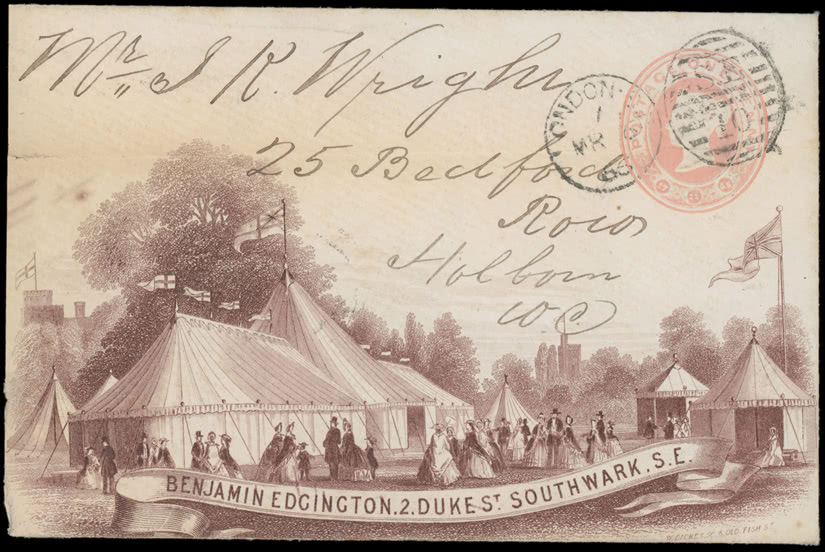 Mr J K. Wright
25 Bedford
Row
Holborn
W.C.
LONDON
1
MR
65
POSTAGE ONE PENNY
BENJAMIN EDGINGTON. 2. DUKE ST SOUTHWARK. S.E.
OLD FISH ST